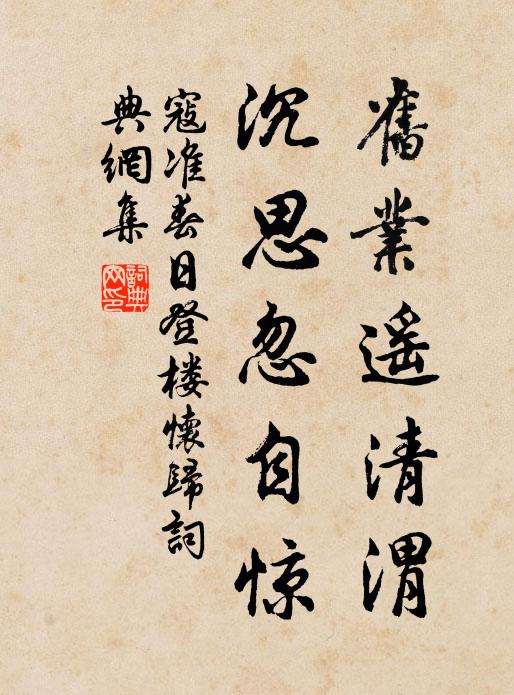 舊業遥清渭
沉思忽自惊
寇准春日登楼懷歸詞
典網集
詞典网印